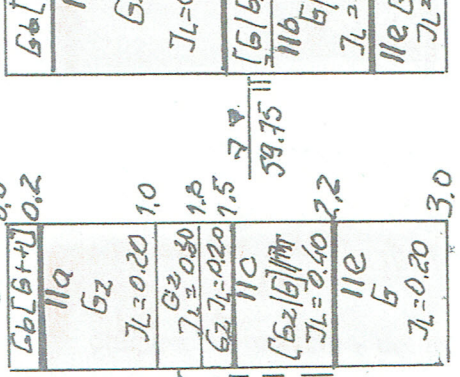 0.2
Gb[G+H]
IIa
Gz
JL=0.20
1.0
Gz
JL=0.30
1.3
Gz JL=0.20
1.5
IIc
[Gz|G]//Pπ
JL=0.40
2.2
IIe
G
JL=0.20
3.0
7
59.75
Gb[
G
JL=
[G|b
IIb
G|
JL=
IIe G
JL=